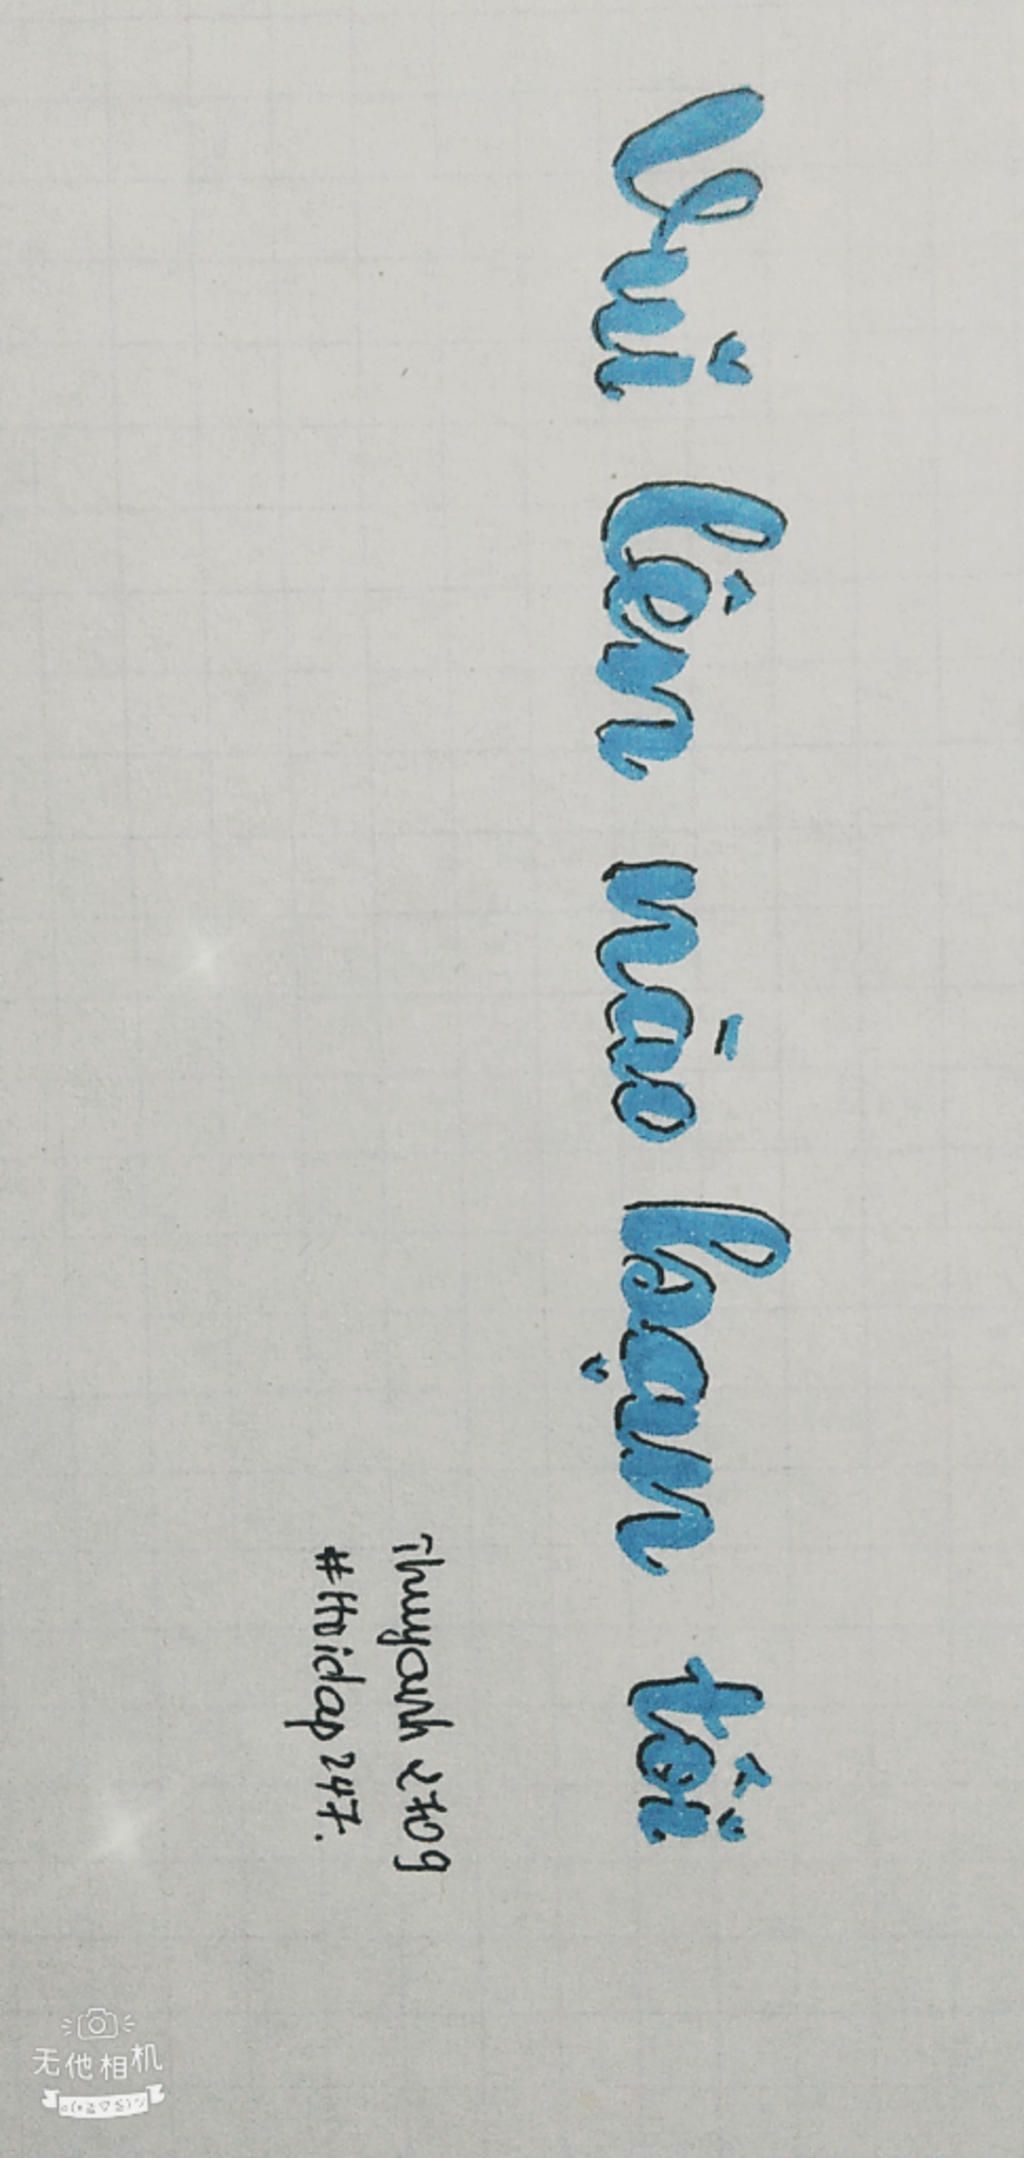 Vui lên nào bạn tôi
Thuyanh 2709
#Hoidap247.
无他相机